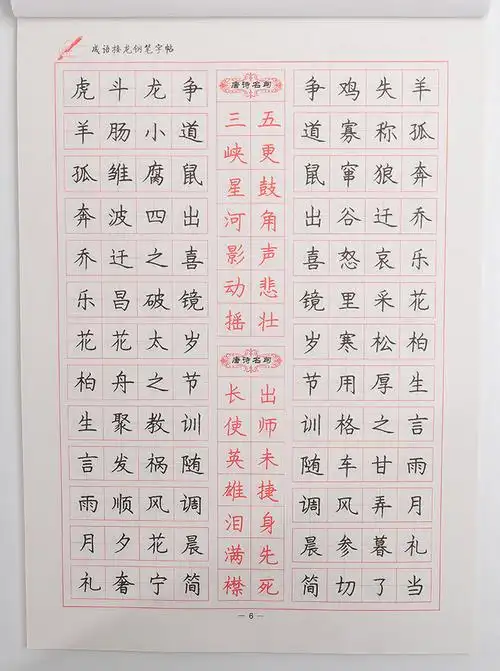 成语接龙钢笔字帖
虎斗龙争
争鸡失羊
羊肠小道
道寡称孤
孤雏腐鼠
鼠窜狼奔
奔波四出
出谷迁乔
乔迁之喜
喜怒哀乐
乐昌破镜
镜里采花
花花太岁
岁寒松柏
柏舟之节
节用厚生
生聚教训
训格之言
言发祸随
随车甘雨
雨顺风调
调风弄月
月夕花晨
晨参暮礼
礼奢宁简
简切了当
唐诗名句
五更鼓角声悲壮
三峡星河影动摇
唐诗名句
出师未捷身先死
长使英雄泪满襟
— 6 —